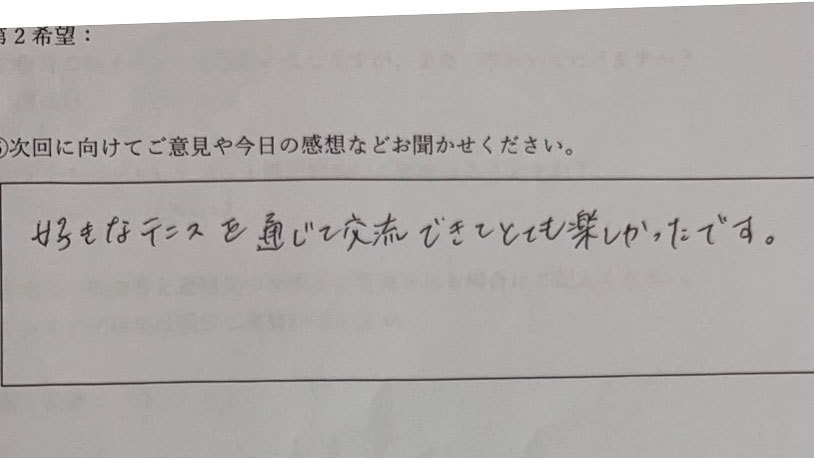 第2希望：
次回に向けてご意見や今日の感想などお聞かせください。
好きなテニスを通じて交流できてとても楽しかったです。